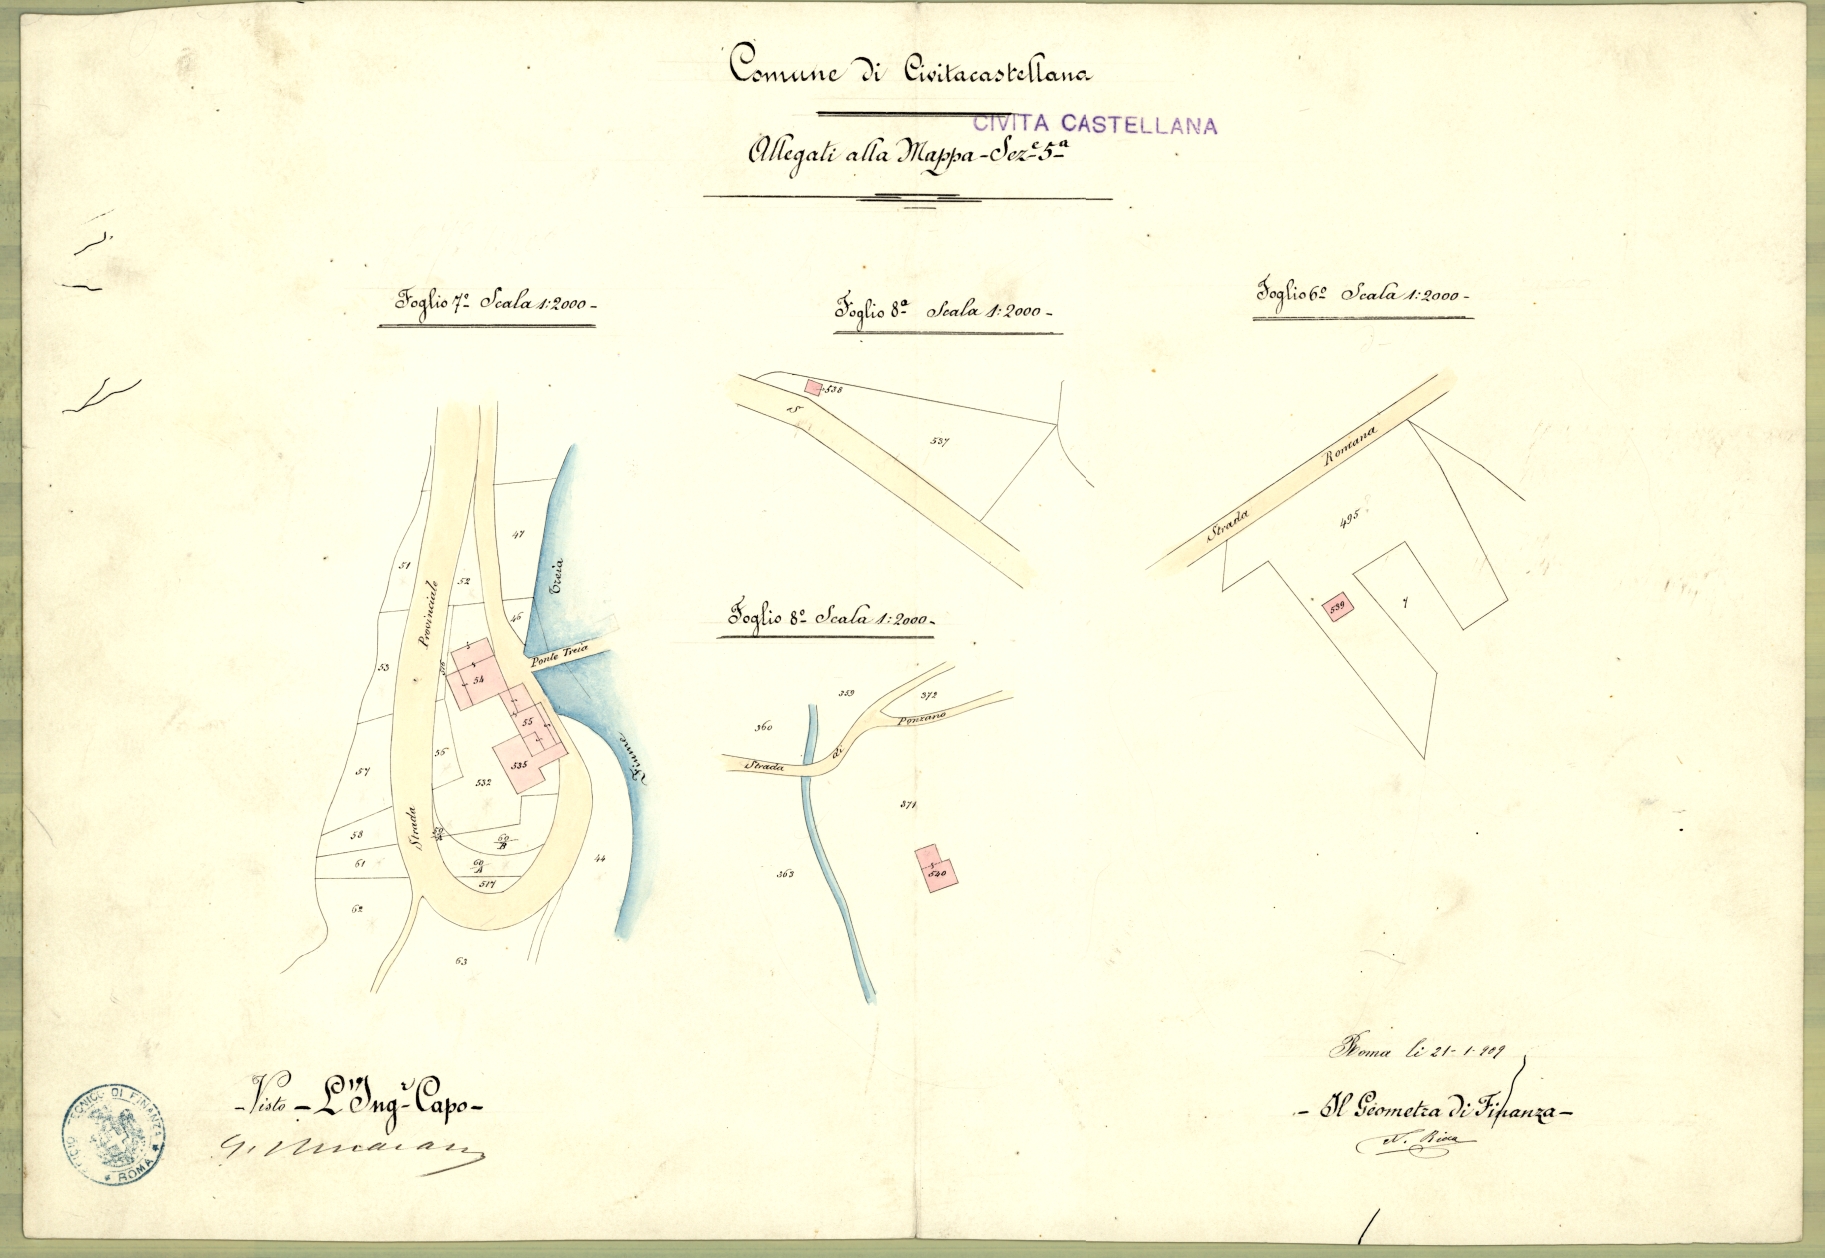 Comune di Civitacastellana
CIVITA CASTELLANA
Allegati alla Mappa - Sez.e 5a
Foglio 7o Scala 1:2000 -
51
52
47
Treia
46
Strada Provinciale
53
Ponte Treia
54
55
535
532
Fiume
57
58
61
62
60/B
60/A
517
44
63
Foglio 8a Scala 1:2000 -
538
537
Foglio 8o Scala 1:2000 -
359
372
360
Strada di Ponzano
371
363
540
Foglio 6o Scala 1:2000 -
Strada Romana
495
539
Roma li 21-1-909
- Visto - L'Ing.r Capo -
- Il Geometra di Finanza -
TECNICO DI FINANZA
ROMA